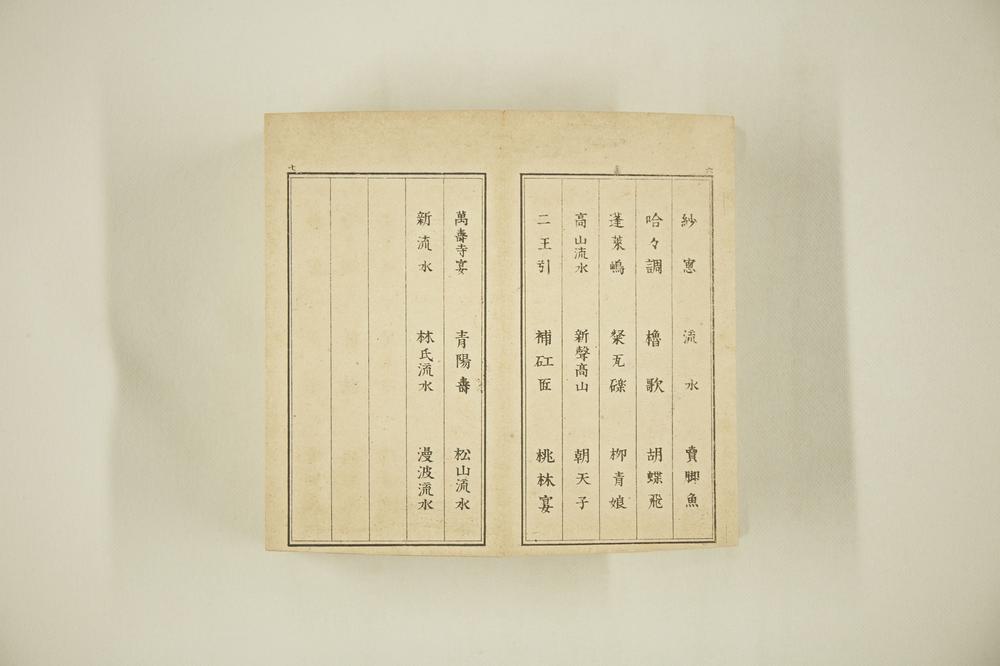 六
紗窓 流水 賣脚魚
哈々調 櫓歌 胡蝶飛
蓬萊嶋 粲瓦礫 柳青娘
高山流水 新聲高山 朝天子
二王引 補矼匠 桃林宴
七
萬壽寺宴 青陽壽 松山流水
新流水 林氏流水 漫波流水